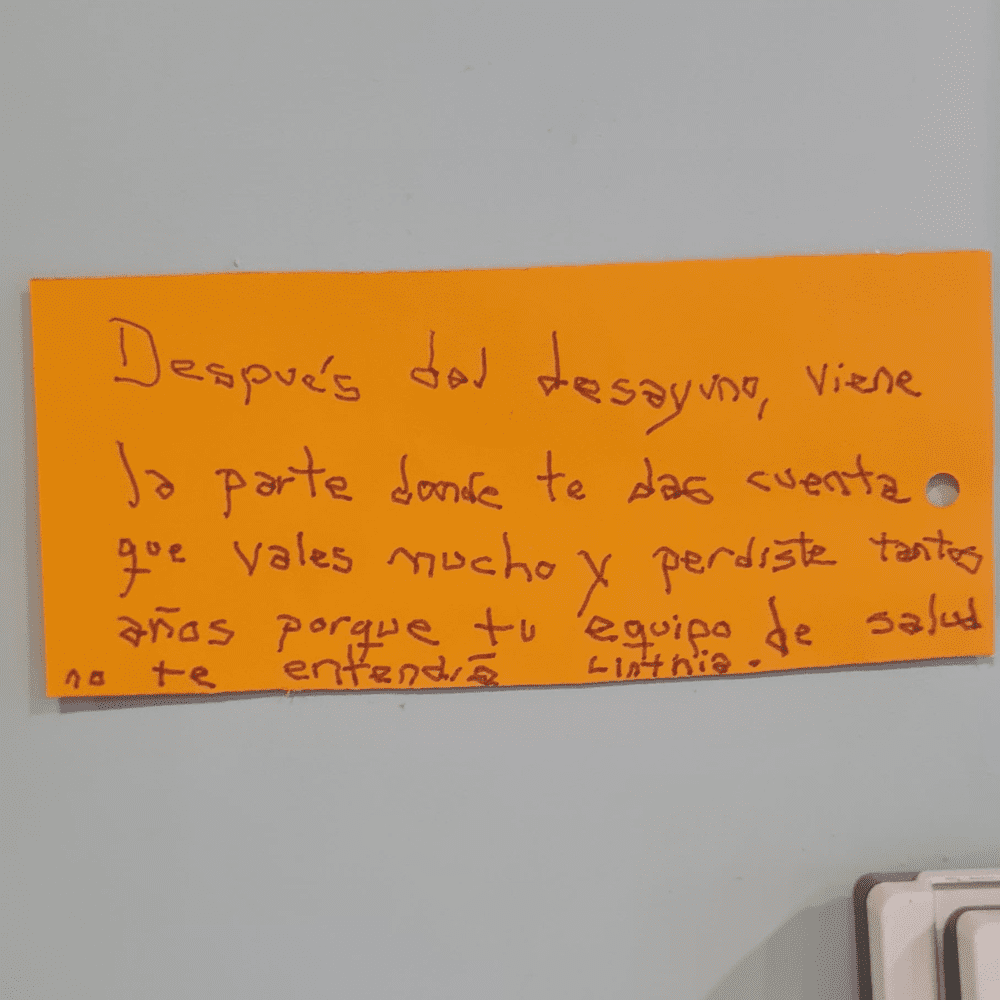 Después del desayuno, viene
la parte donde te das cuenta
que vales mucho y perdiste tantos
años porque tu equipo de salud
no te entendía Cinthia.